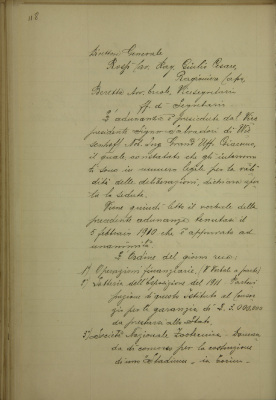 Direttore Generale
Rossi Cav. Rag. Giulio Cesare,
Ragioniere Capo,
Beretta Avv. Vicesegretari
ff. di Segretario.
L'adunanza è presieduta dal Vice
presidente Signor
Nob. Ing. Grand Uff. Giacomo,
il quale, constatato che gli intervenu
ti sono in numero legale per la vali
dità delle deliberazioni, dichiara aper
ta la seduta.
Viene quindi letto il verbale della
precedente adunanza tenutasi il
5 febbraio 1910 che è approvato ad
unanimità.
L'Ordine del giorno reca:
1°) Operazioni finanziarie,
2°) Lotteria dell'Esposizione del 1911. Parteci
pazione di questo Istituto al Consor
zio per la garanzia di L.
da prestarsi allo Stato.
3°) Società Nazionale Zootecnica. Doman
da di concorso per la costruzione
di uno Stadium in Torino.